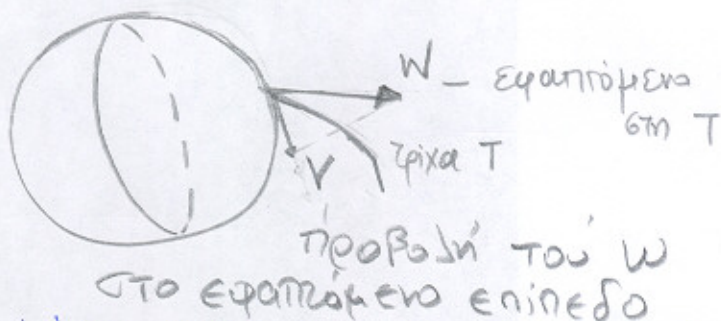 W - εφαπτόμενο
στη T
V
τρίχα T
προβολή του W
στο εφαπτόμενο επίπεδο